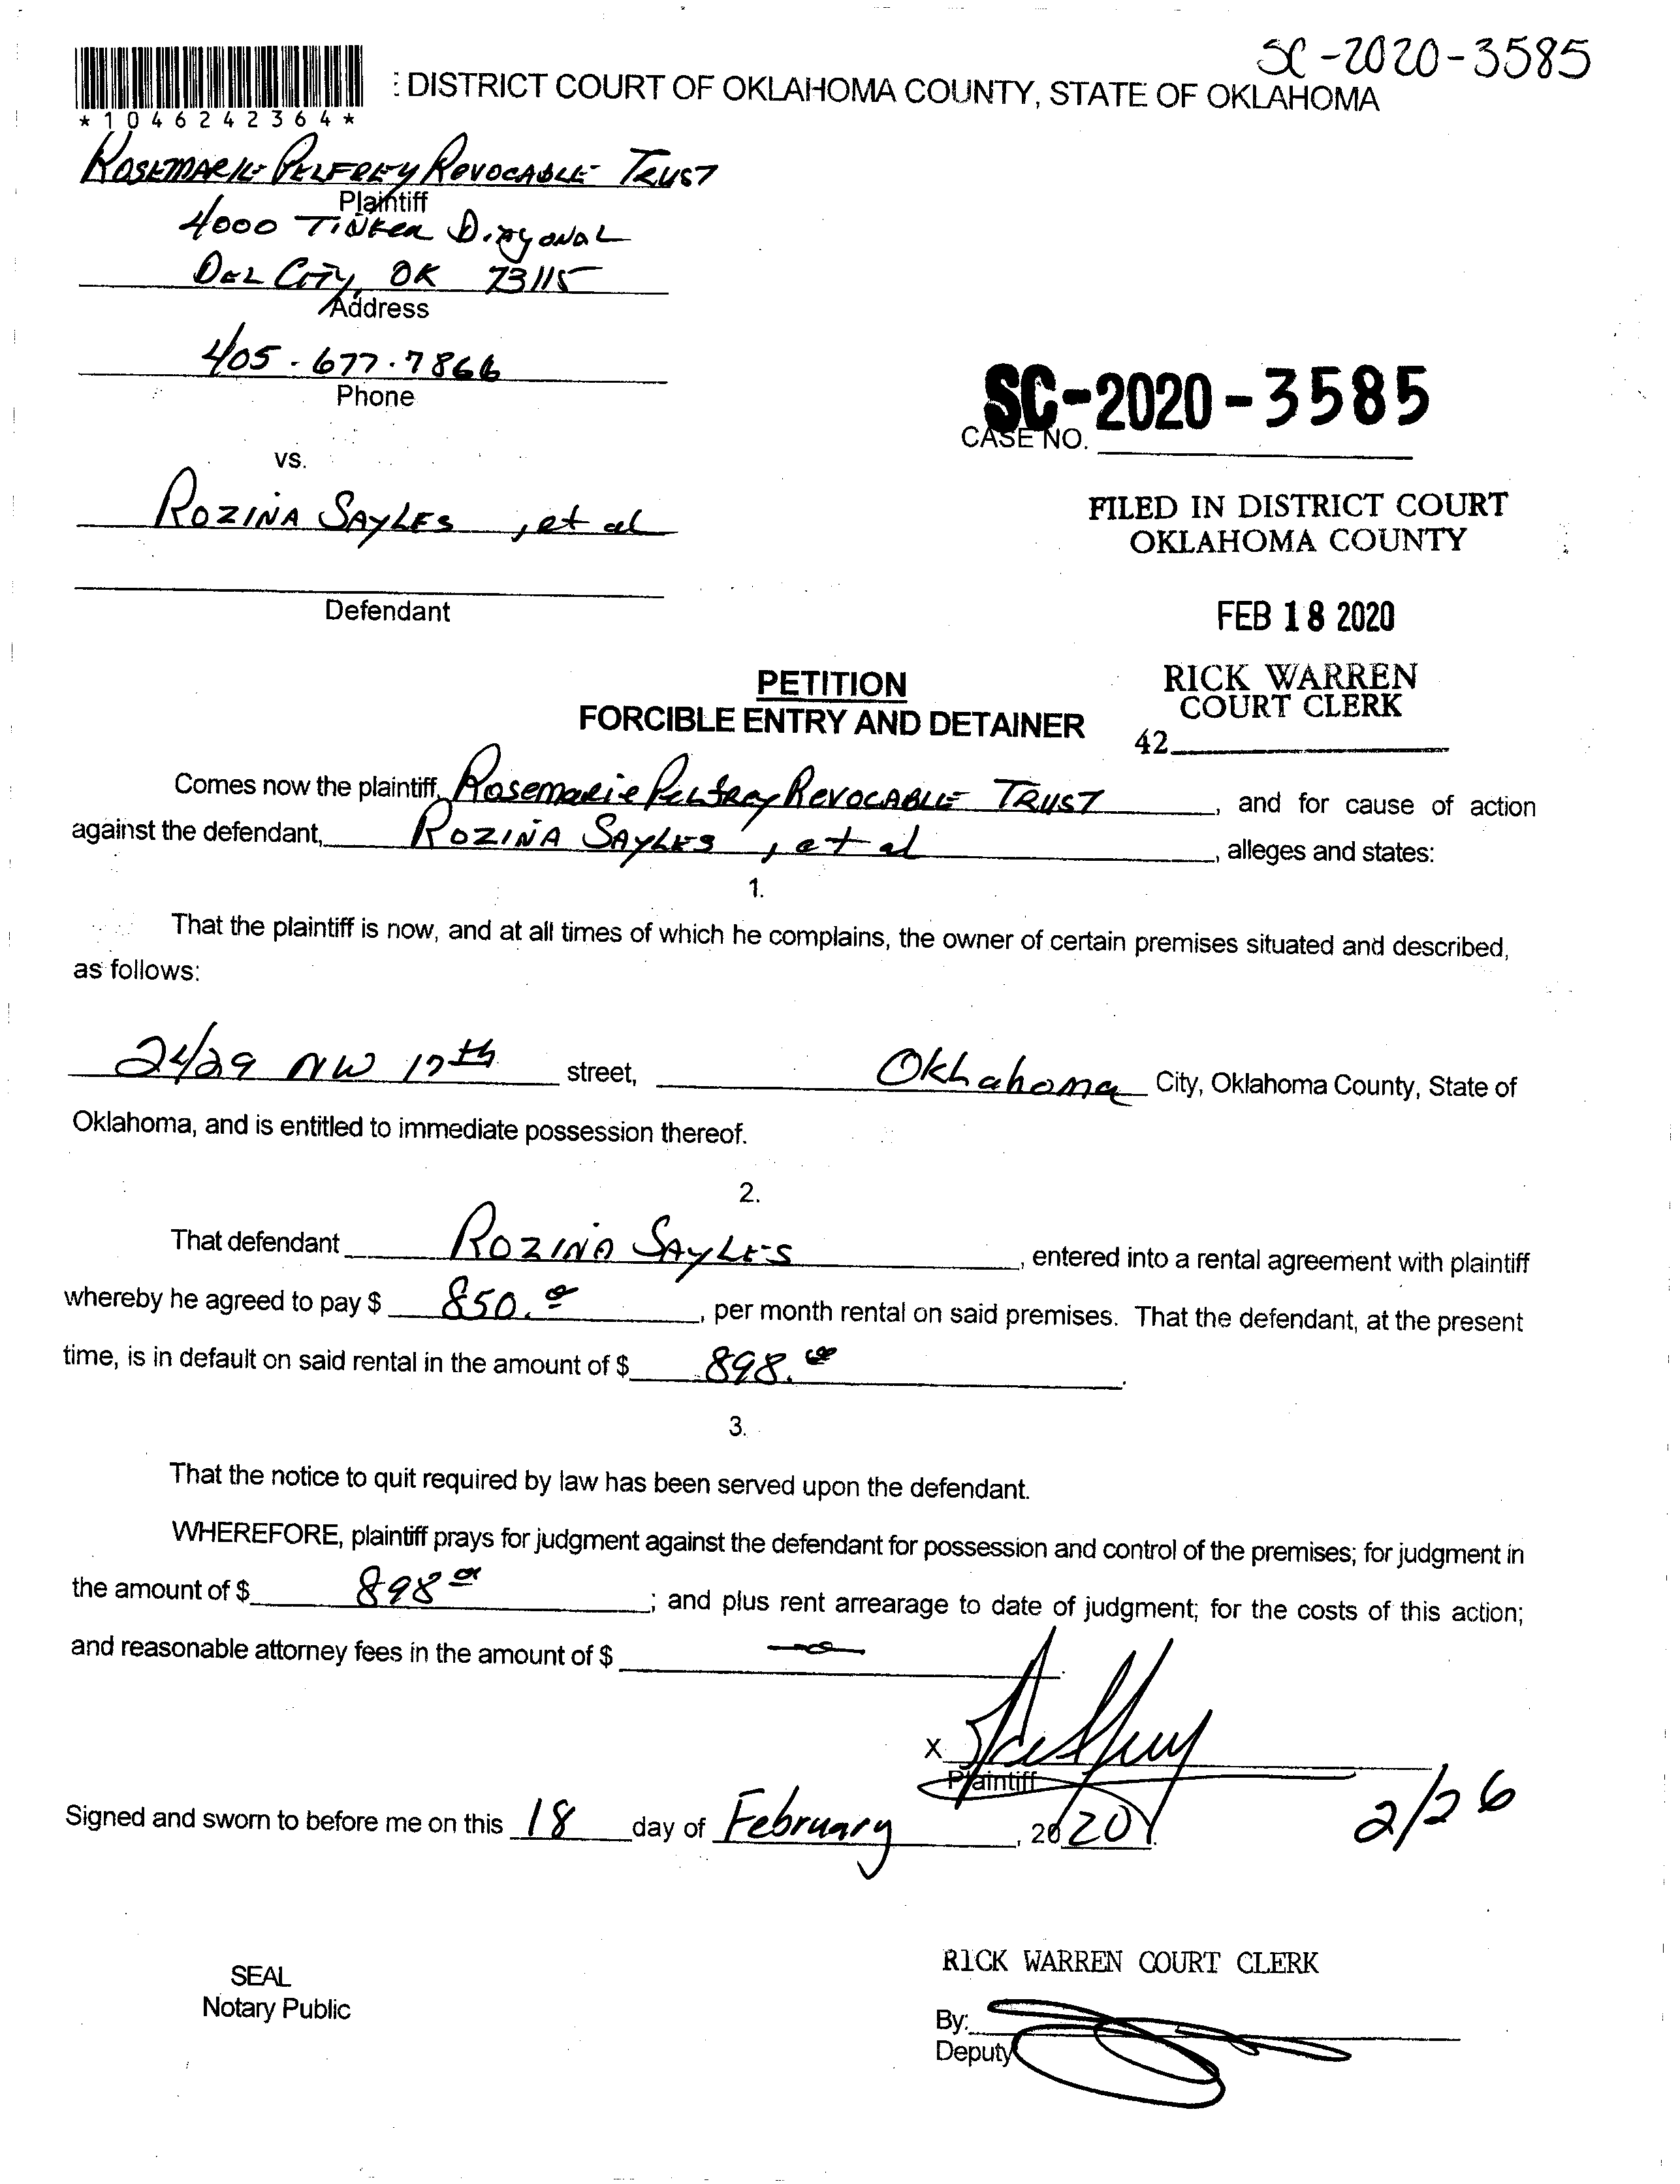 SC-2020-3585
: DISTRICT COURT OF OKLAHOMA COUNTY, STATE OF OKLAHOMA
*1046242364*
ROSEMARIE PELFREY REVOCABLE TRUST
Plaintiff
4000 TINKER DIAGONAL
DEL CITY, OK 73115
Address
405-677-7866
Phone
SC-2020-3585
CASE NO.
vs.
ROZINA SAYLES, et al
FILED IN DISTRICT COURT
OKLAHOMA COUNTY
Defendant
FEB 18 2020
PETITION
FORCIBLE ENTRY AND DETAINER
RICK WARREN
COURT CLERK
42
Comes now the plaintiff, Rosemarie Pelfrey REVOCABLE TRUST, and for cause of action
against the defendant, ROZINA SAYLES, et al, alleges and states:
1.
That the plaintiff is now, and at all times of which he complains, the owner of certain premises situated and described,
as follows:
2429 NW 17th street, Oklahoma City, Oklahoma County, State of
Oklahoma, and is entitled to immediate possession thereof.
2.
That defendant ROZINA SAYLES, entered into a rental agreement with plaintiff
whereby he agreed to pay $ 850.00, per month rental on said premises. That the defendant, at the present
time, is in default on said rental in the amount of $ 898.00.
3.
That the notice to quit required by law has been served upon the defendant.
WHEREFORE, plaintiff prays for judgment against the defendant for possession and control of the premises; for judgment in
the amount of $ 898.00; and plus rent arrearage to date of judgment; for the costs of this action;
and reasonable attorney fees in the amount of $
X
Plaintiff
Signed and sworn to before me on this 18 day of February, 2020.
2/26
RICK WARREN COURT CLERK
SEAL
Notary Public
By:
Deputy